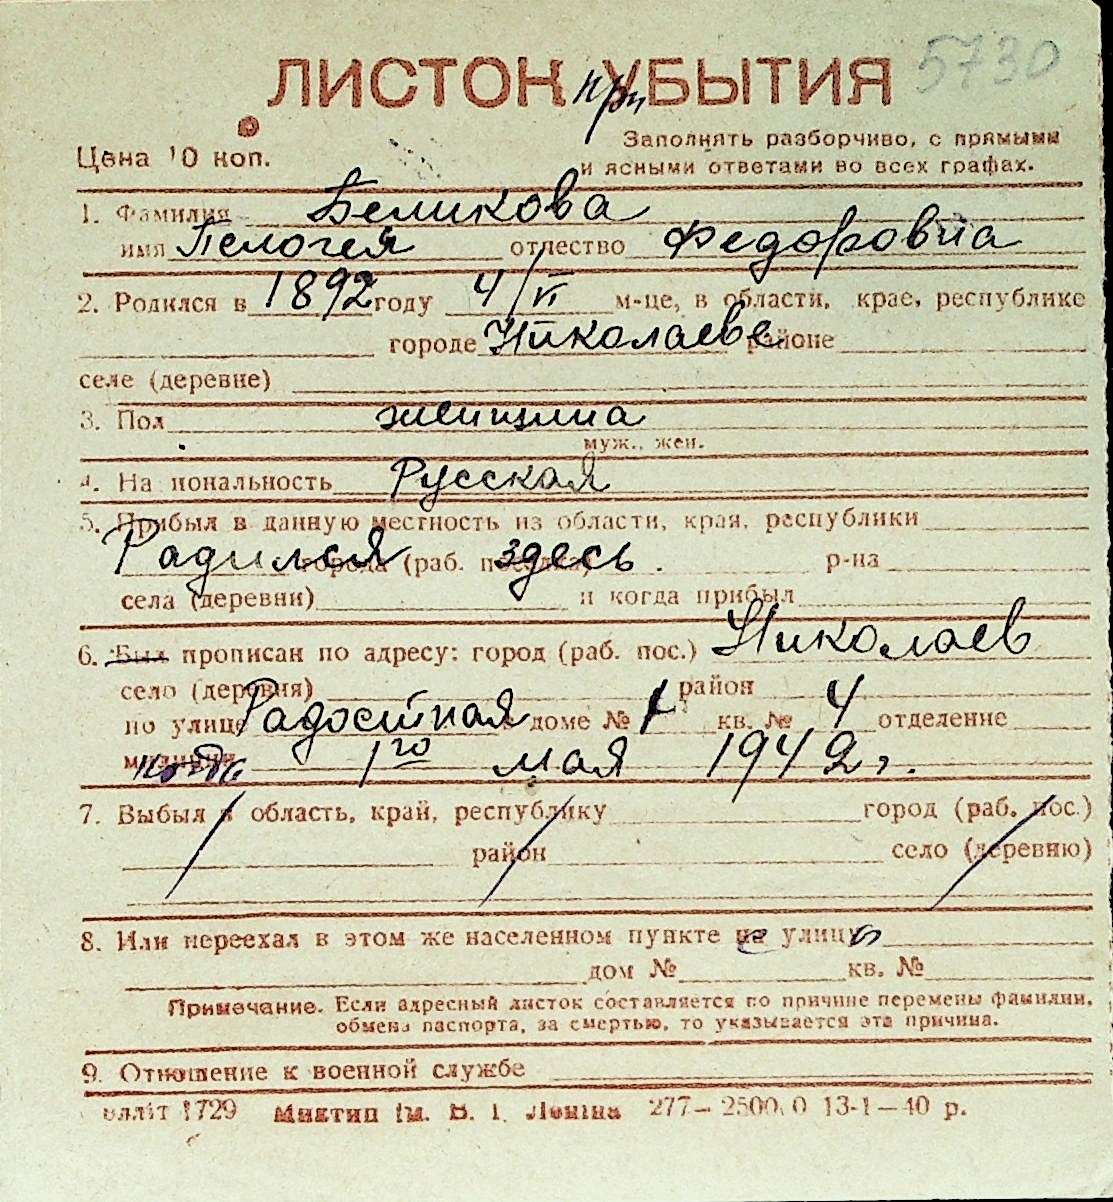 5730
ЛИСТОК при УБЫТИЯ
Цена 10 коп.
Заполнять разборчиво, с прямыми
и ясными ответами во всех графах.
1. Фамилия Беликова
имя Пелогея отчество Федоровна
2. Родился в 1892 году 4/VI м-це, в области, крае, республике
городе Николаеве районе
селе (деревне)
3. Пол женщина
муж., жен.
4. Национальность Русская
5. Прибыл в данную местность из области, края, республики
Радился города (раб. поселка) здесь. р-на
села (деревни) и когда прибыл
6. Был прописан по адресу: город (раб. пос.) Николаев
село (деревня) район
по улице Радостная доме № 1 кв. № 4 отделение
милиции 1го мая 1942 г.
7. Выбыл в область, край, республику город (раб. пос.)
район село (деревню)
8. Или переехал в этом же населенном пункте на улицу
дом № кв. №
Примечание. Если адресный листок составляется по причине перемены фамилии,
обмена паспорта, за смертью, то указывается эта причина.
9. Отношение к военной службе
1729 Миктип ім. В. І. Леніна 277— 13-1—40 р.